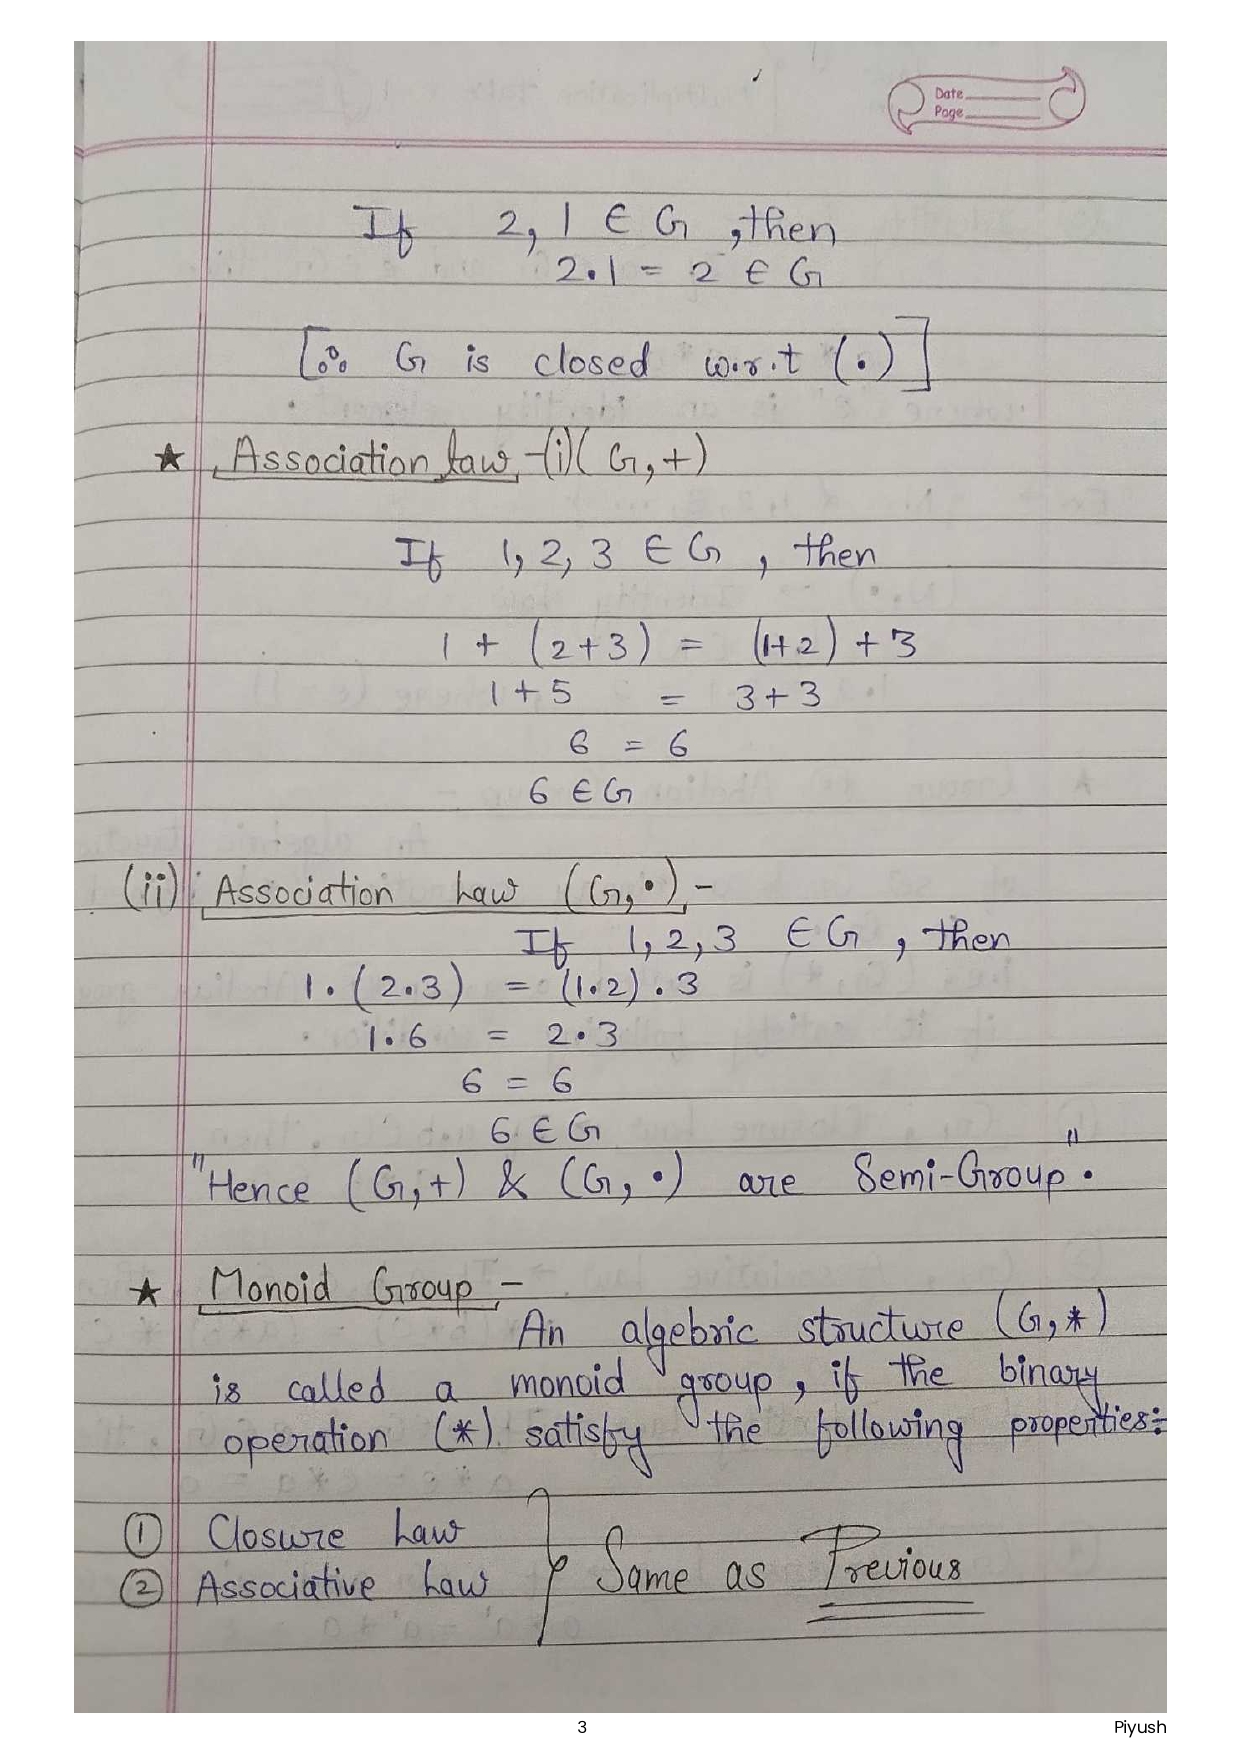 Date
Page
If 2, 1 ∈ G, then
2.1 = 2 ∈ G
[∴ G is closed w.r.t (.)]
★ Association Law -(i) (G,+)
If 1, 2, 3 ∈ G, then
1 + (2+3) = (1+2) + 3
1+5 = 3+3
6 = 6
6 ∈ G
(ii) Association Law (G, •) -
If 1, 2, 3 ∈ G, then
1. (2.3) = (1.2) . 3
1.6 = 2.3
6 = 6
6 ∈ G
"Hence (G,+) & (G, •) are Semi-Group".
★ Monoid Group -
An algebric structure (G,*)
is called a monoid group, if the binary
operation (*) satisfy the following properties:
① Closure Law
② Associative Law } Same as Previous
3
Piyush